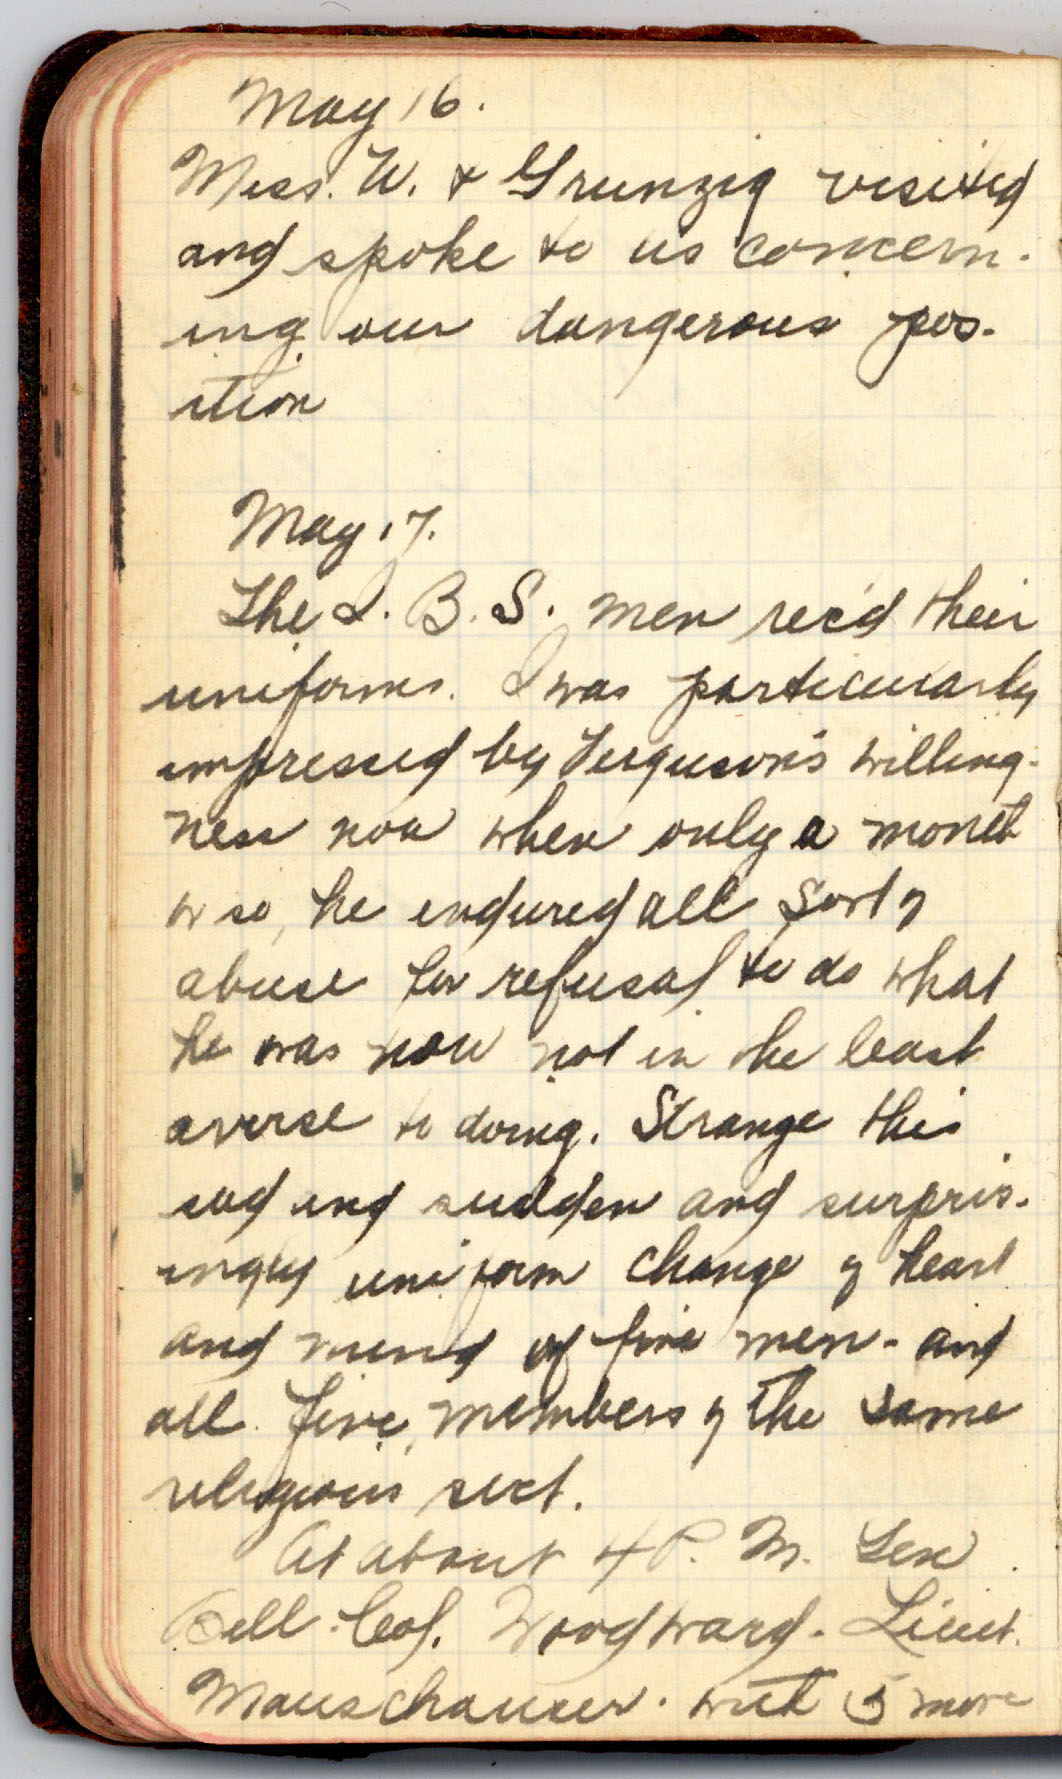 May 16.
Mess. W. & Grunzig visited
and spoke to us concern-
ing our dangerous pos-
ition
May 17.
The I. B. S. men rec'd their
uniforms. I was particularly
impressed by Ferguson's willing-
ness now when only a month
or so, he endured all sort of
abuse for refusal to do what
he was now not in the least
averse to doing. Strange this
and sudden and surpris-
ingly uniform change of heart
and mind of five men - and
all five, members of the same
religious sect.
At about 4 P. M. Gen
Bell. Col. Woodward. Lieut.
Mauschauser. with 5 more